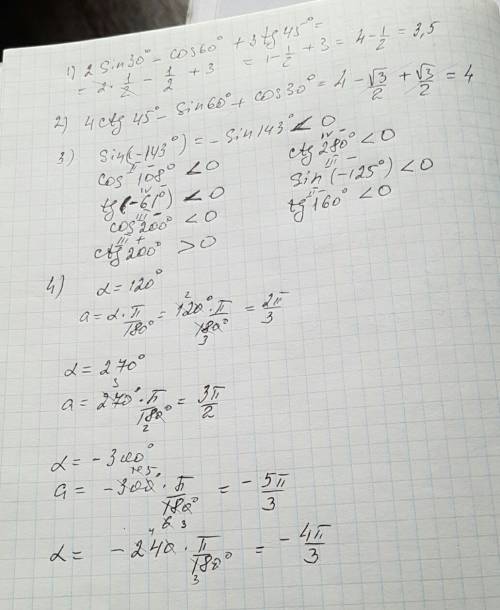 1) 2 sin30° - cos60° + 3tg45° =
= 2·1/2 - 1/2 + 3 = 1 - 1/2 + 3 = 4 - 1/2 = 3,5
2) 4ctg45° - sin60° + cos30° = 4 - √3/2 + √3/2 = 4
3) sin(-143°) = -sin143° < 0
ctg 280° < 0
IV -
cos 108° < 0
II -
sin(-125°) < 0
III -
tg(-61°) < 0
IV -
tg 160° < 0
II -
cos 200° < 0
III -
ctg 200° > 0
III +
4) α = 120°
a = α·π/180° = 120°·π/180° = 2π/3
2
3
α = 270°
a = 270°·π/180° = 3π/2
3
2
α = -300°
a = -300·π/180° = -5π/3
6 3
α = -240·π/180° = -4π/3
4
3